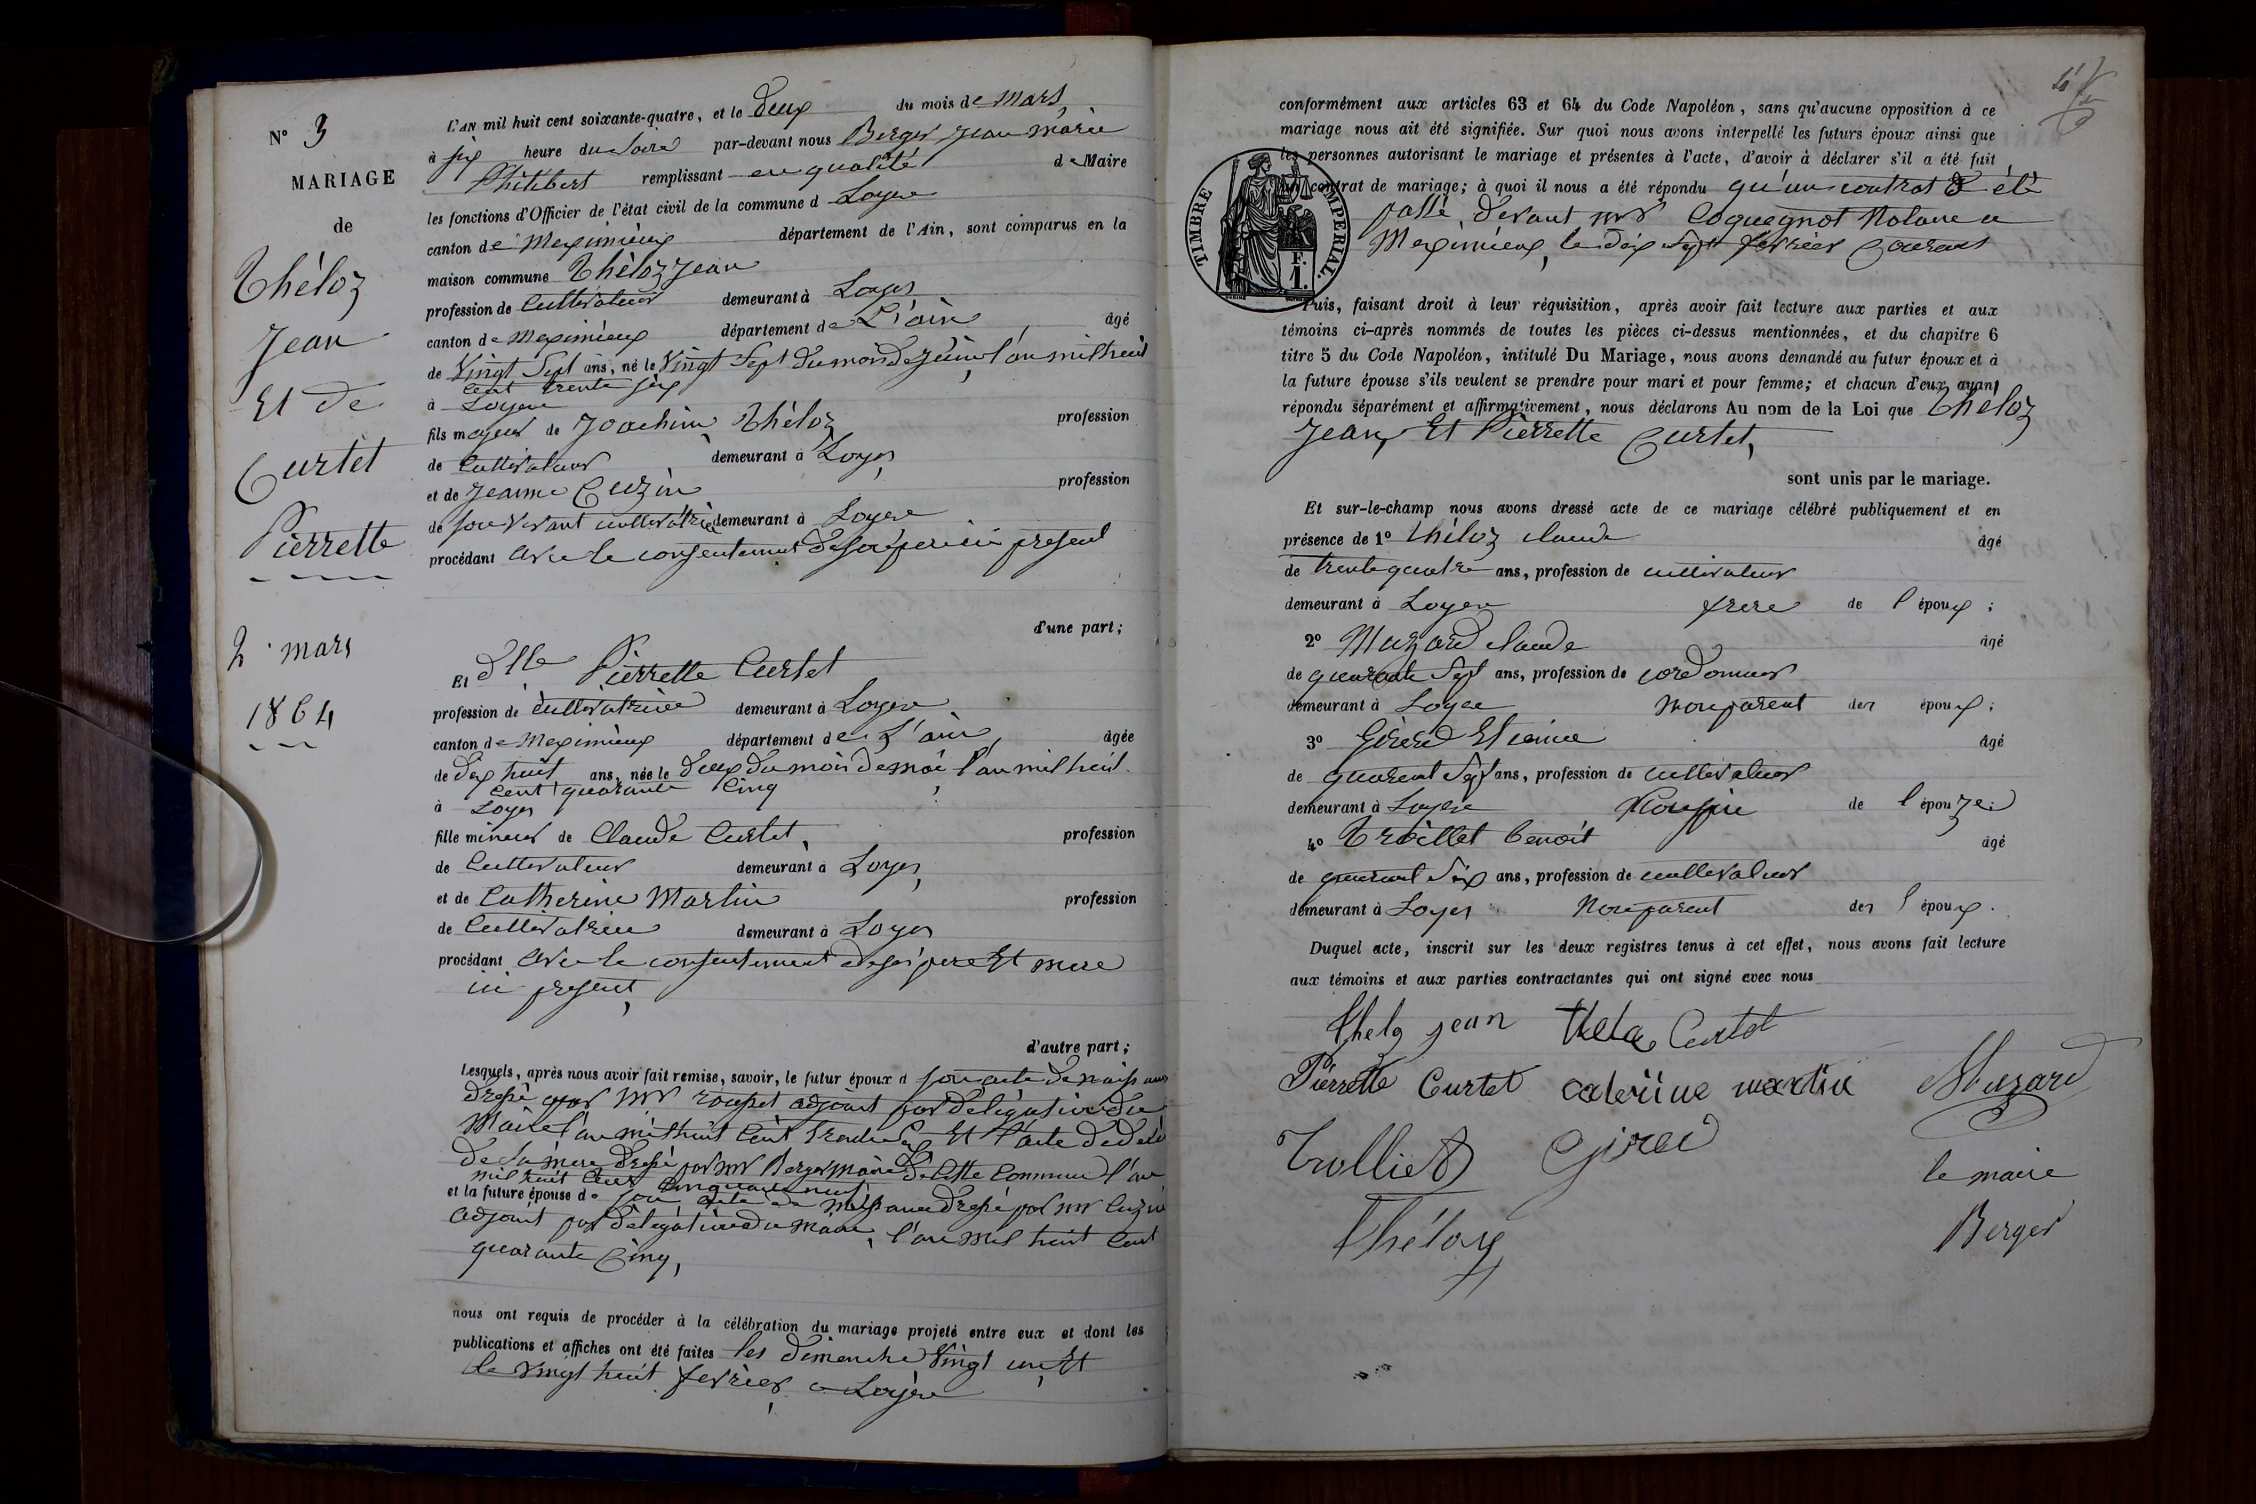 N° 3
MARIAGE
de
Théloz
Jean
Et de
Curtet
Pierrette
2 mars
1864
L'AN mil huit cent soixante-quatre, et le deux du mois de Mars,
à six heure du soire par-devant nous Berger Jean Marie
Philibert remplissant en qualité de Maire
les fonctions d'Officier de l'état civil de la commune d Loyes
canton de Meximieux département de l'Ain, sont comparus en la
maison commune Théloz Jean
profession de Cultivateur demeurant à Loyes
canton de Meximieux département de L'ain, âgé
de Vingt Sept ans, né le Vingt Sept du mois de juin, l'an mil huit
Cent trente six
à Loyes
fils majeur de Joachim Théloz profession
de Cultivateur demeurant à Loyes,
et de Jeanne Cuzin profession
de son vivant cultivatrice demeurant à Loyes
procédant avec le consentement de son père ici présent
d'une part;
Et dlle Pierrette Curtet
profession de Cultivatrice demeurant à Loyes
canton de Meximieux département de L'ain, âgée
de dix huit ans, née le deux du mois de mai l'an mil huit
Cent quarante Cinq
à Loyes
fille mineur de Claude Curtet, profession
de Cultivateur demeurant à Loyes,
et de Catherine Martin profession
de Cultivatrice demeurant à Loyes
procédant avec le consentement de ses père Et mere
ici present,
d'autre part;
Lesquels, après nous avoir fait remise, savoir, le futur époux d son acte de naissance
dressé par mr adjoint par délégation du
Maire l'an mil huit Cent trente six Et l'acte de décès
de Sa mere dressé par mr Berger maire de Cette Commune l'an
mil huit Cent Cinquante neuf
et la future épouse de son acte de naissance dressé par mr Cuzin
adjoint par délégation du maire, l'an mil huit Cent
quarante Cinq,
nous ont requis de procéder à la célébration du mariage projeté entre eux et dont les
publications et affiches ont été faites les dimanche Vingt un, Et
le vingt huit fevrier a Loyes
conformément aux articles 63 et 64 du Code Napoléon, sans qu'aucune opposition à ce
mariage nous ait été signifiée. Sur quoi nous avons interpellé les futurs époux ainsi que
les personnes autorisant le mariage et présentes à l'acte, d'avoir à déclarer s'il a été fait
un contrat de mariage; à quoi il nous a été répondu qu'un contrat a été
passé, devant mr Coquegnot Notaire a
Meximieux, le dix Sept fevrier Courant
TIMBRE IMPERIAL.
F.
1.
Puis, faisant droit à leur réquisition, après avoir fait lecture aux parties et aux
témoins ci-après nommés de toutes les pièces ci-dessus mentionnées, et du chapitre 6
titre 5 du Code Napoléon, intitulé Du Mariage, nous avons demandé au futur époux et à
la future épouse s'ils veulent se prendre pour mari et pour femme; et chacun d'eux ayant
répondu séparément et affirmativement, nous déclarons Au nom de la Loi que Théloz
Jean, Et Pierrette Curtet,
sont unis par le mariage.
Et sur-le-champ nous avons dressé acte de ce mariage célébré publiquement et en
présence de 1° Théloz claude âgé
de trente quatre ans, profession de cultivateur
demeurant à Loyes frere de l'époux;
2° Muzard claude âgé
de quarante Sept ans, profession de cordonnier
demeurant à Loyes non parent des époux;
3° Girerd Etienne âgé
de quarant Sept ans, profession de cultivateur
demeurant à Loyes Cousin de l'épouze;
4° Trolliet benoit âgé
de quarant Six ans, profession de cultivateur
demeurant à Loyes Non parent des époux.
Duquel acte, inscrit sur les deux registres tenus à cet effet, nous avons fait lecture
aux témoins et aux parties contractantes qui ont signé avec nous
theloz jean Curtet
Pierrette Curtet caterine martin Muzard
Trolliet Girer le maire
Théloz Berger